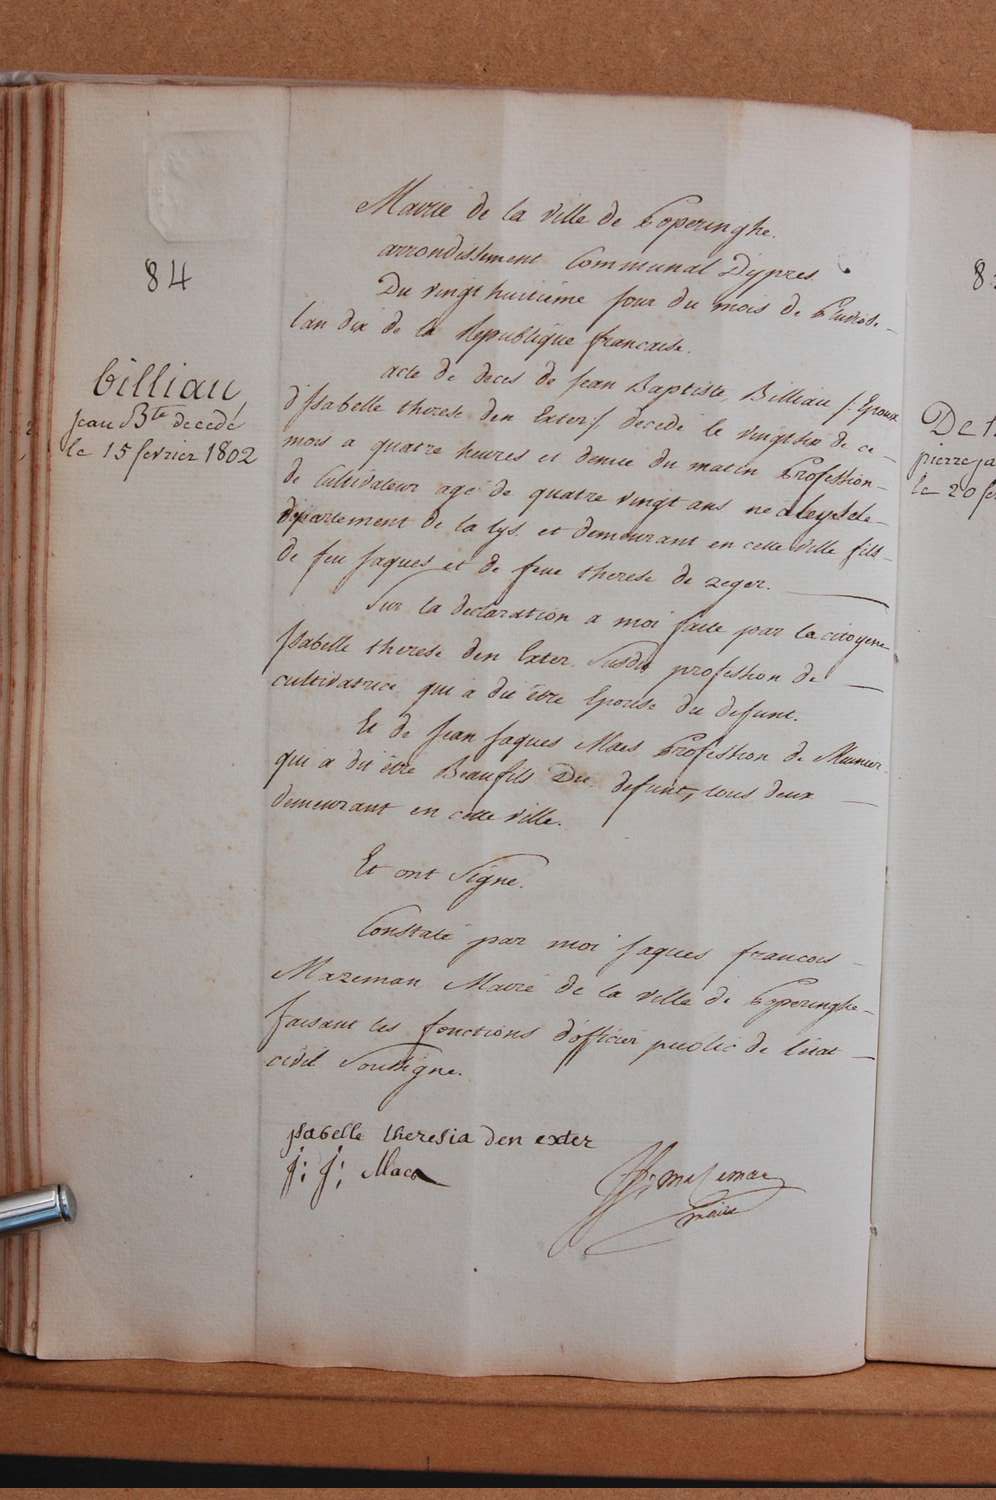 84
billiau
Jean Bte decedé
le 15 fevrier 1802
Mairie de la ville de Poperinghe.
arrondissement Communal Dypres
Du vingt huitieme jour du mois de Pluviose
lan dix de la Republique francaise.
acte de deces de Jean Baptiste Billiau /: Epoux
disabelle therese den Exter :/ decedé le vingt six de ce
mois a quatre heures et demie du matin Profession
de Cultivateur agé de quatre vingt ans né a leysele
departement de la lys. et demeurant en cette ville fils
de feu Jaques et de feue therese de zeger.
Sur la declaration a moi faite par la citoyene
Isabelle therese den Exter susdit profession de
cultivatrice qui a dit être Epouse du defunt.
Et de Jean Jaques Maes Profession de Meunier
qui a dit être Beaufils Du defunt, tous deux
demeurant en cette ville.
Et ont signé.
Constaté par moi Jaques francois
Mazeman Maire de la ville de Poperinghe
faisant les fonctions d'officier public de l'état
civil soussigné.
isabelle theresia den exter
j: j: Maes
maseman
maire
8
De
pierre ja
le 20 fe